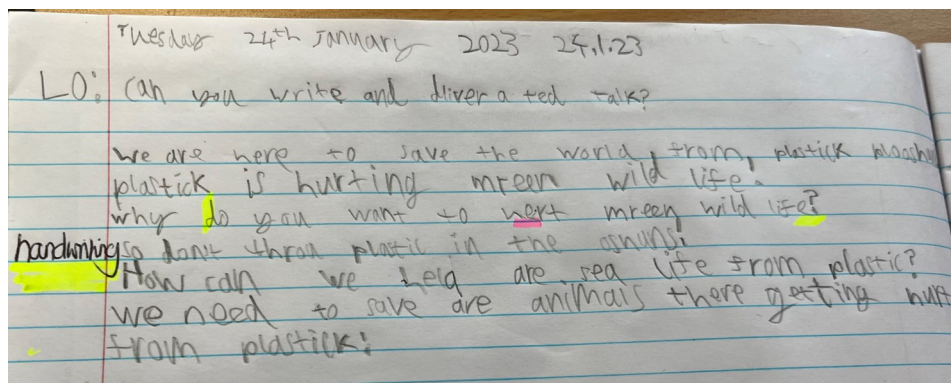 Tuesday 24th January 2023 24.1.23
LO: Can you write and diliver a ted talk?
we are here to save the world, from, plastick
plastick is hurting mreen wild life!
why do you want to hert mreen wild life?
handwriting so don't throu plastic in the oshuns!
How can we help are sea life from plastic?
we need to save are animals there getting hurt
from plastick!